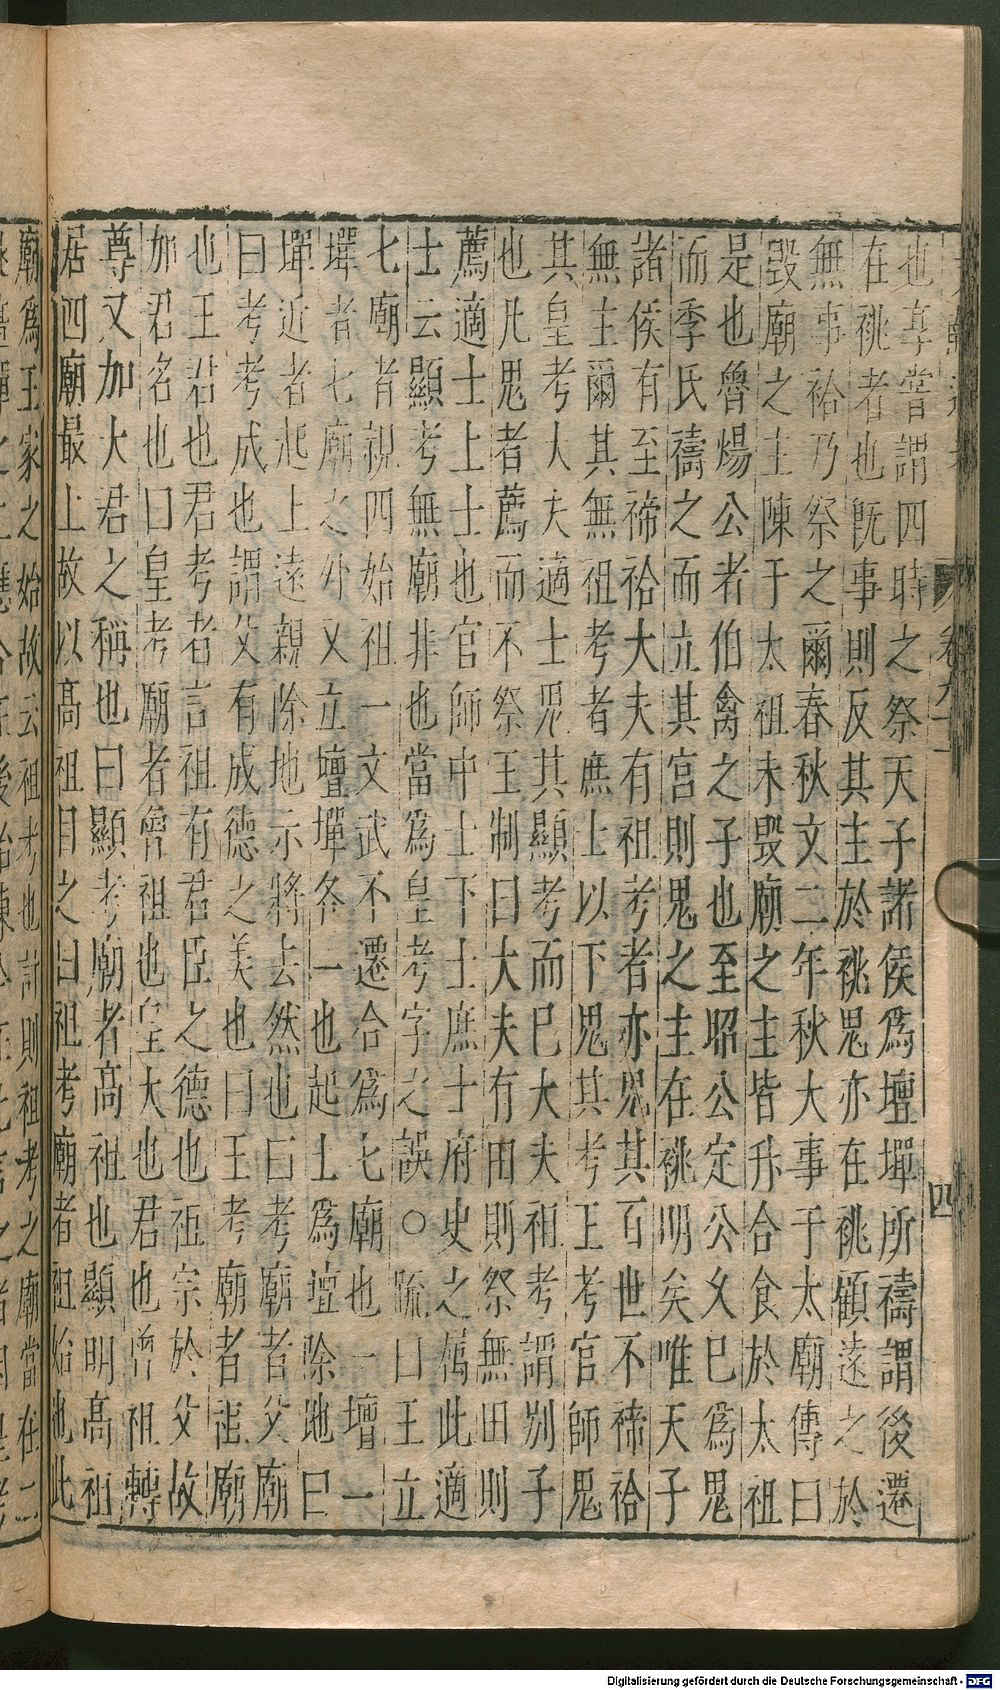 四
也享嘗謂四時之祭天子諸侯爲壇墠所禱謂後遷
在祧者也旣事則反其主於祧鬼亦在祧顧遠之於
無事祫乃祭之爾春秋文二年秋大事于太廟傳曰
毀廟之主陳于太祖未毀廟之主皆升合食於太祖
是也魯煬公者伯禽之子也至昭公定公久巳爲鬼
而季氏禱之而立其宮則鬼之主在祧明矣唯天子
諸侯有至禘祫大夫有祖考者亦鬼其百世不禘祫
無主爾其無祖考者庶士以下鬼其考王考官師鬼
其皇考大夫適士鬼其顯考而巳大夫祖考謂別子
也凡鬼者薦而不祭王制曰大夫有田則祭無田則
薦適士上士也官師中士下士庶士府史之萬此適
士云顯考無廟非也當爲皇考字之誤○疏曰王立
七廟者親四始祖一文武不遷合爲七廟也一壇一
墠者七廟之外又立壇墠各一也起土爲壇除地曰
墠近者起上遠親除地示將去然也曰考廟者父廟
曰考考成也謂父有成德之美也曰王考廟者祖廟
也王君也君考者言祖有君臣之德也祖宗於父故
加君名也曰皇考廟者曾祖也皇大也君也曾祖轉
尊又加大君之稱也曰顯考廟者高祖也顯明高祖
居四廟最上故以高祖目之曰祖考廟者祖始也此
廟爲王家之始故云祖考也計則祖考之廟當在二
Digitalisierung gefördert durch die Deutsche Forschungsgemeinschaft - DFG